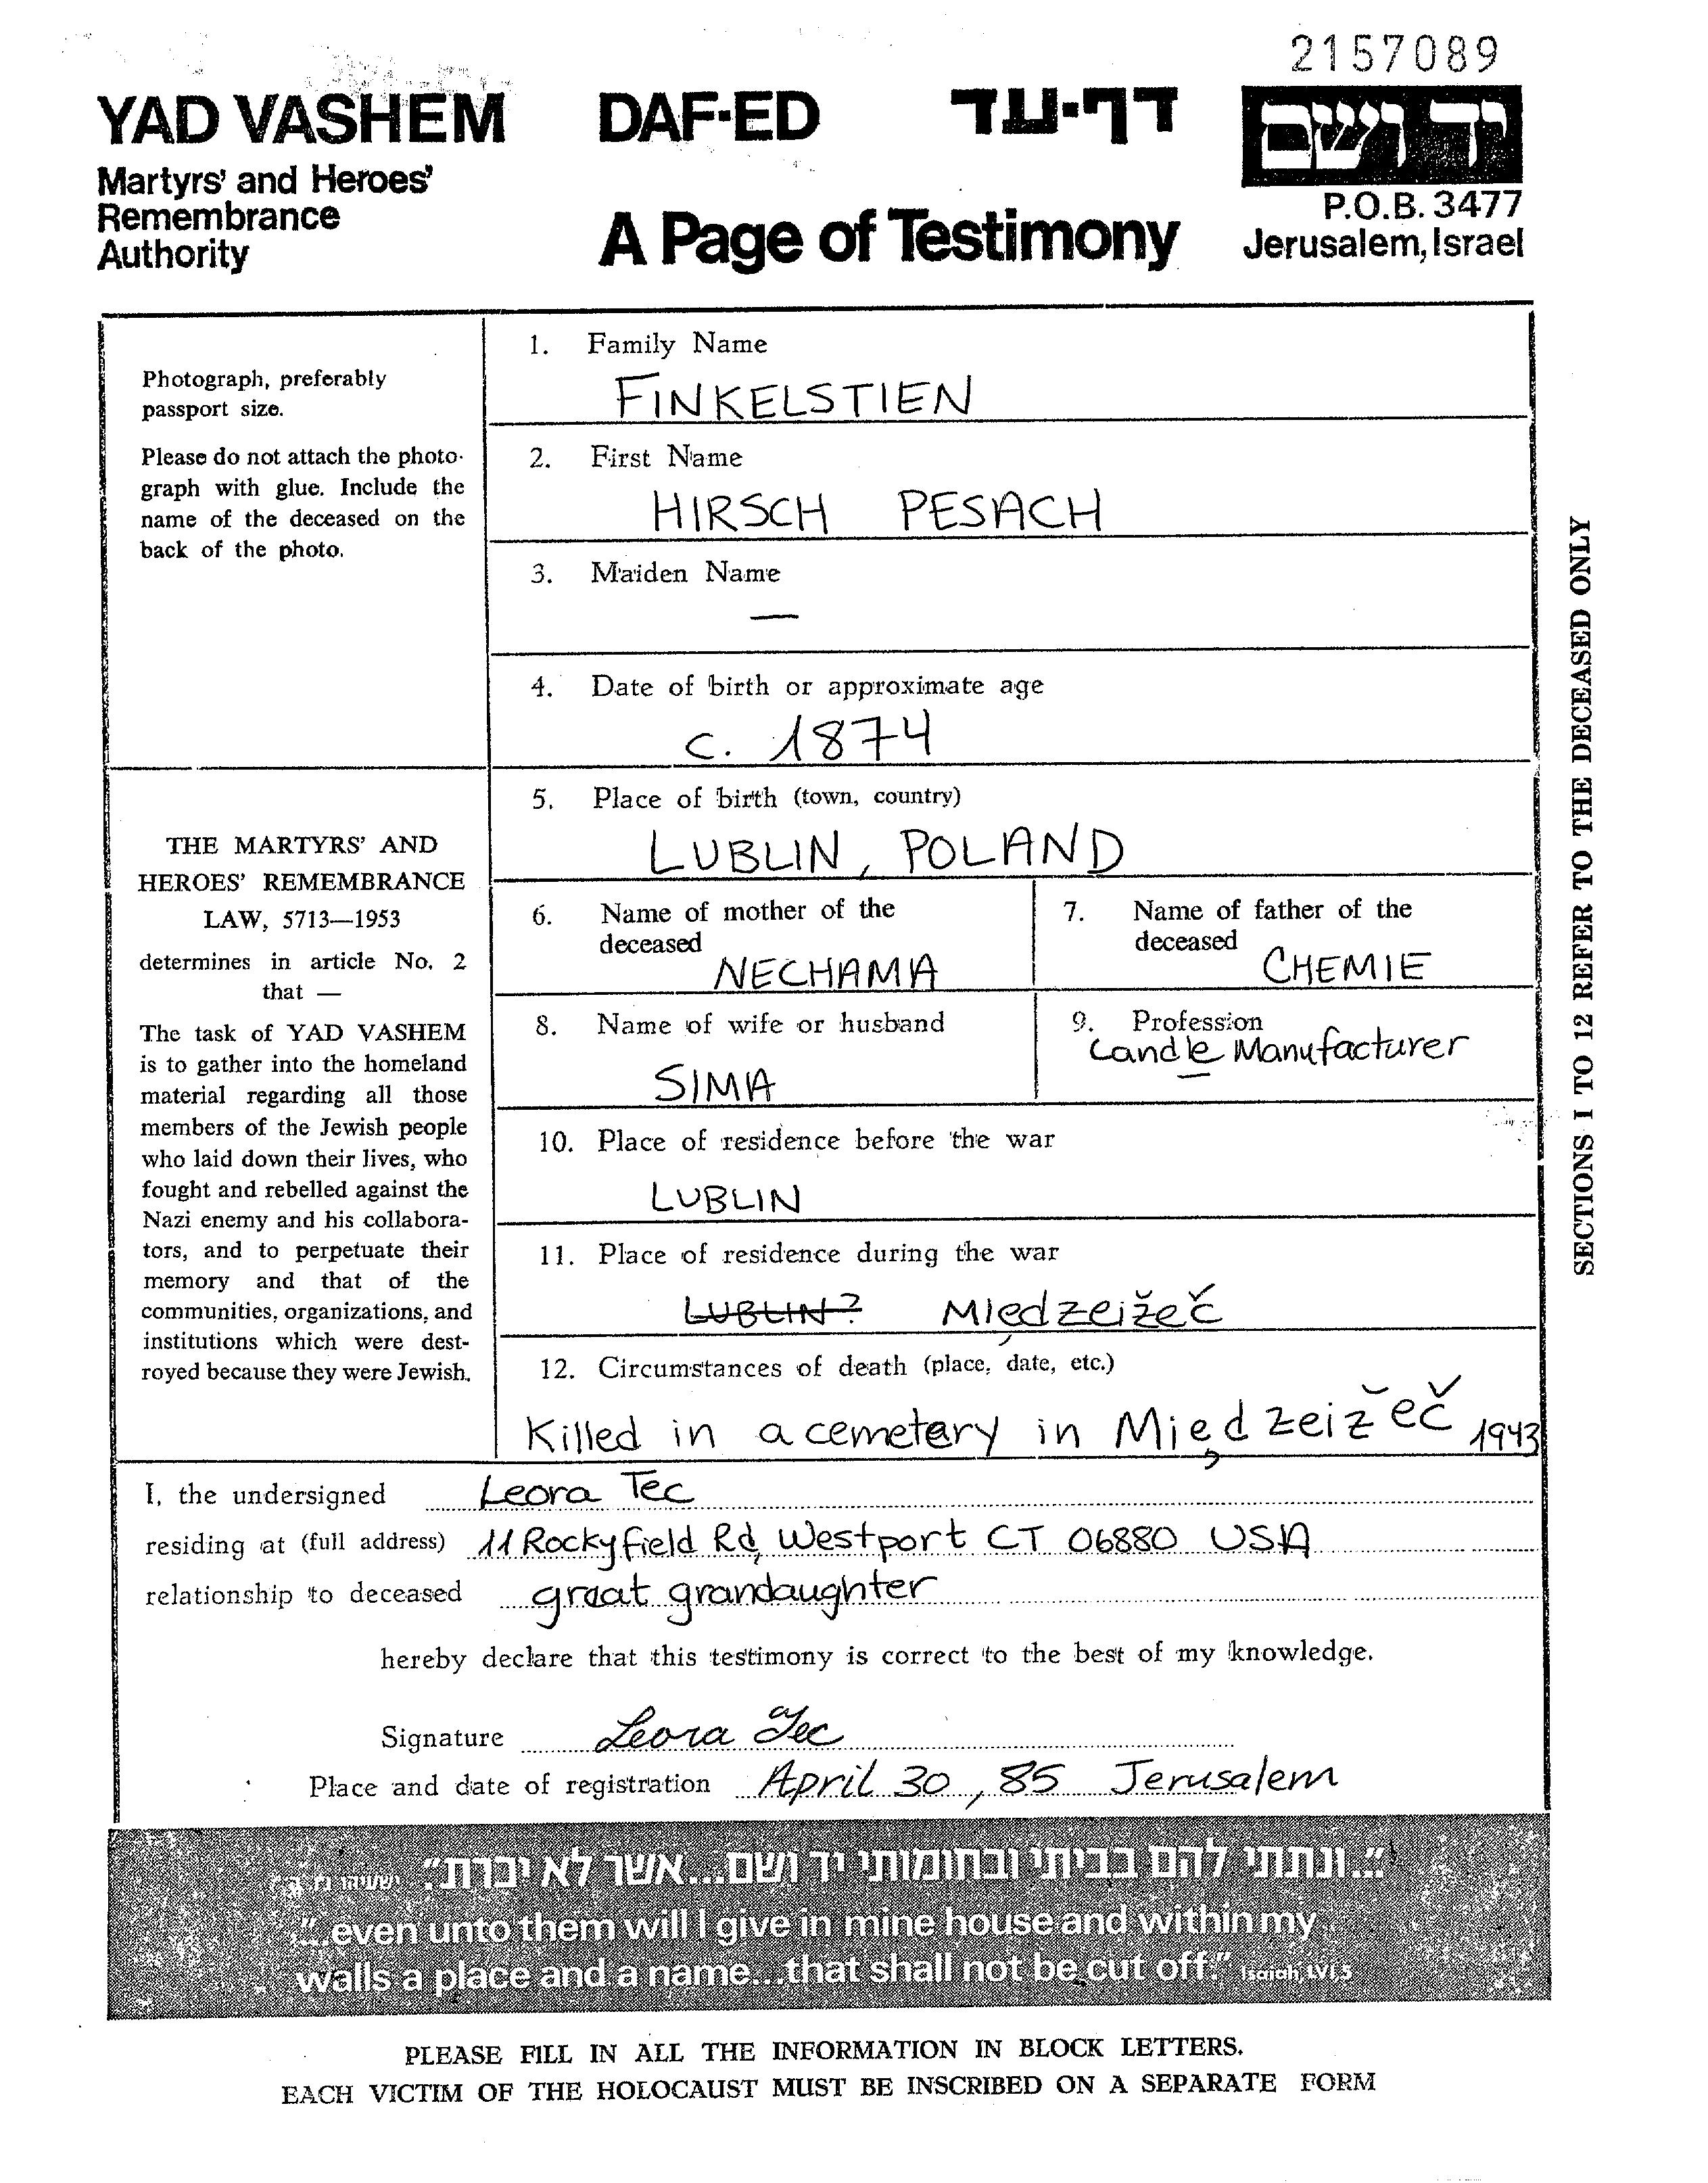 2157089
YAD VASHEM DAF-ED דף-עד יד ושם
Martyrs' and Heroes'
Remembrance
Authority
A Page of Testimony
P.O.B. 3477
Jerusalem, Israel
Photograph, preferably
passport size.
Please do not attach the photo-
graph with glue. Include the
name of the deceased on the
back of the photo.
THE MARTYRS' AND
HEROES' REMEMBRANCE
LAW, 5713—1953
determines in article No. 2
that —
The task of YAD VASHEM
is to gather into the homeland
material regarding all those
members of the Jewish people
who laid down their lives, who
fought and rebelled against the
Nazi enemy and his collabora-
tors, and to perpetuate their
memory and that of the
communities, organizations, and
institutions which were dest-
royed because they were Jewish.
1. Family Name
FINKELSTIEN
2. First Name
HIRSCH PESACH
3. Maiden Name
—
4. Date of birth or approximate age
c. 1874
5. Place of birth (town, country)
LUBLIN, POLAND
6. Name of mother of the
deceased
NECHAMA
7. Name of father of the
deceased
CHEMIE
8. Name of wife or husband
SIMA
9. Profession
Candle Manufacturer
10. Place of residence before the war
LUBLIN
11. Place of residence during the war
LUBLIN? Międzeižeč
12. Circumstances of death (place, date, etc.)
Killed in a cemetery in Międzeižeč 1943
SECTIONS 1 TO 12 REFER TO THE DECEASED ONLY
I, the undersigned Leora Tec
residing at (full address) 11 Rockyfield Rd, Westport CT 06880 USA
relationship to deceased great grandaughter
hereby declare that this testimony is correct to the best of my knowledge.
Signature Leora Tec
Place and date of registration April 30, 85 Jerusalem
"...ונתתי להם בביתי ובחומותי יד ושם...אשר לא יכרת".
"...even unto them will I give in mine house and within my
walls a place and a name...that shall not be cut off." Isaiah, LVI,5
PLEASE FILL IN ALL THE INFORMATION IN BLOCK LETTERS.
EACH VICTIM OF THE HOLOCAUST MUST BE INSCRIBED ON A SEPARATE FORM